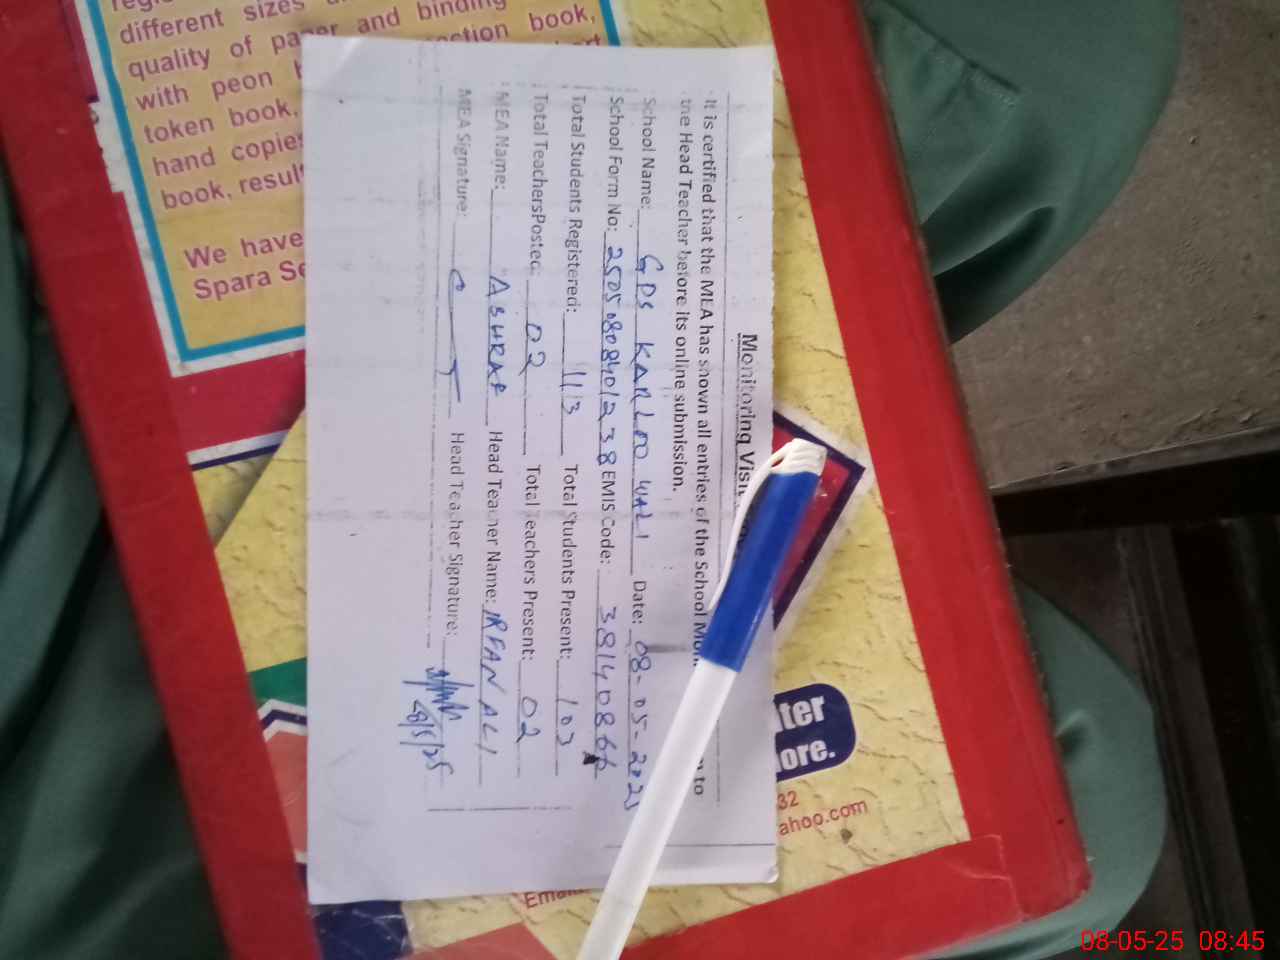 different sizes
quality of paper and binding
ction book,
with peon
token book,
hand copies
book, result
We have
Spara Se
Monitoring Visit
It is certified that the MEA has shown all entries of the School to
the Head Teacher before its online submission.
School Name: GPS KARLOO WALI Date: 08-05-2025
School Form No: EMIS Code:
Total Students Registered: 113 Total Students Present: 103
Total TeachersPosted: 02 Total Teachers Present: 02
MEA Name: ASHRAF Head Teacher Name: IRFAN ALI
MEA Signature: Head Teacher Signature:
8/5/25
ore.
32
ahoo.com
08-05-25 08:45